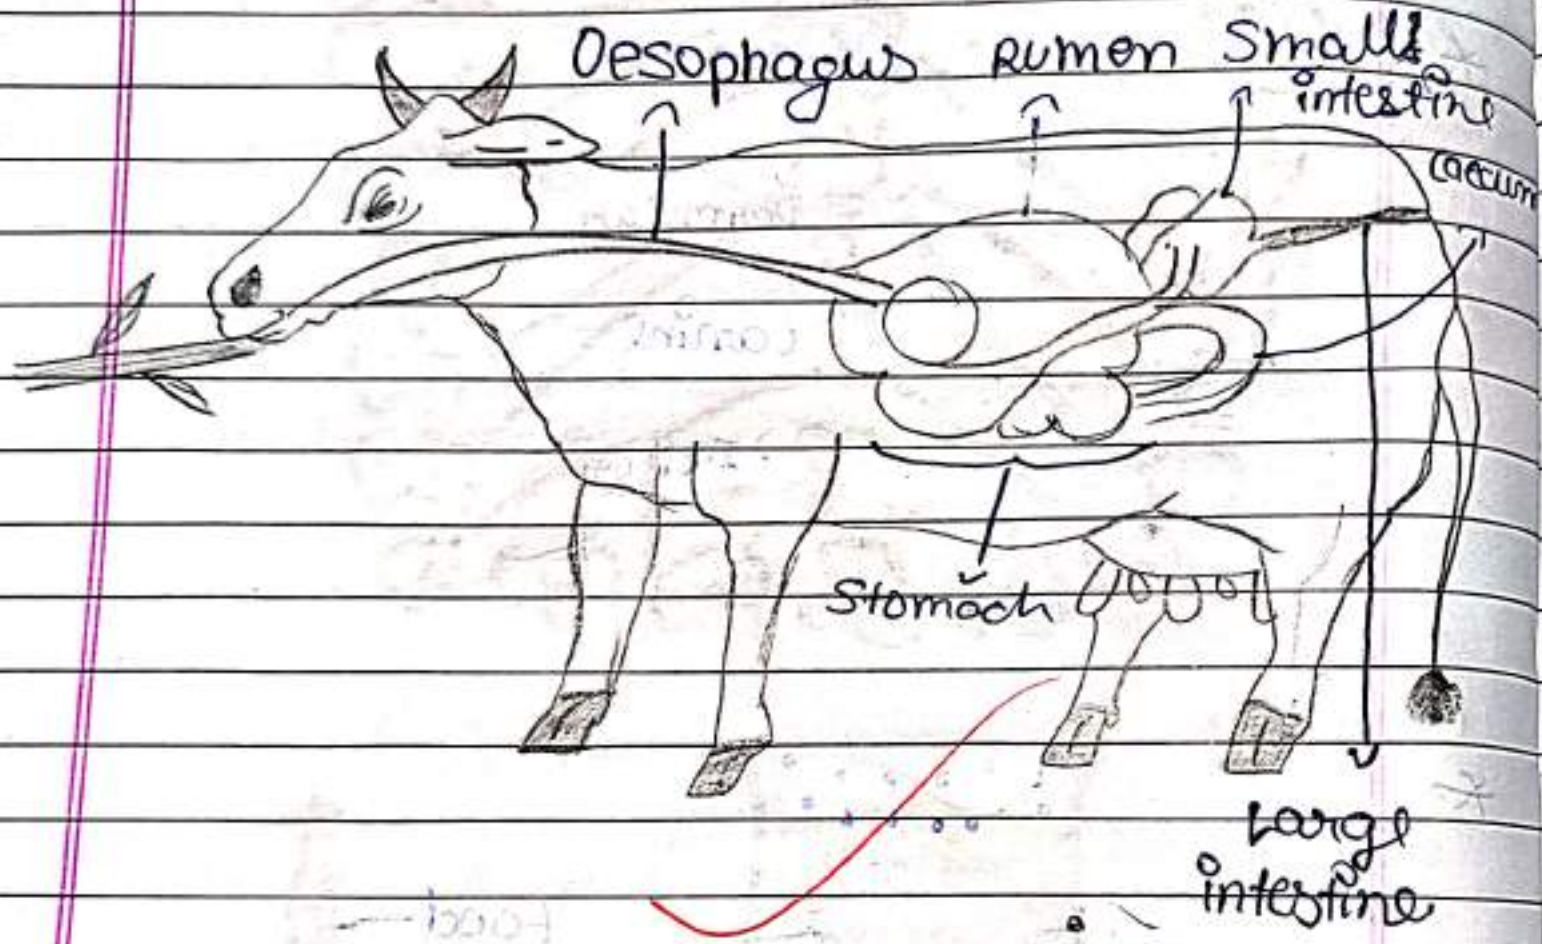 Oesophagus
Rumen
Small
intestine
caecum
Stomach
Large
intestine